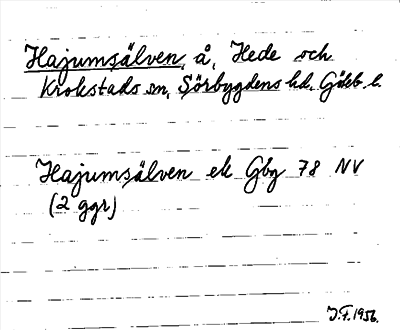 Hajumsälven, å, Hede och
Krokstads sn, Sörbygdens hd, Gbb. l.
Hajumsälven ek Gbg 78 NV
(2 ggr)
J.F. 1956.